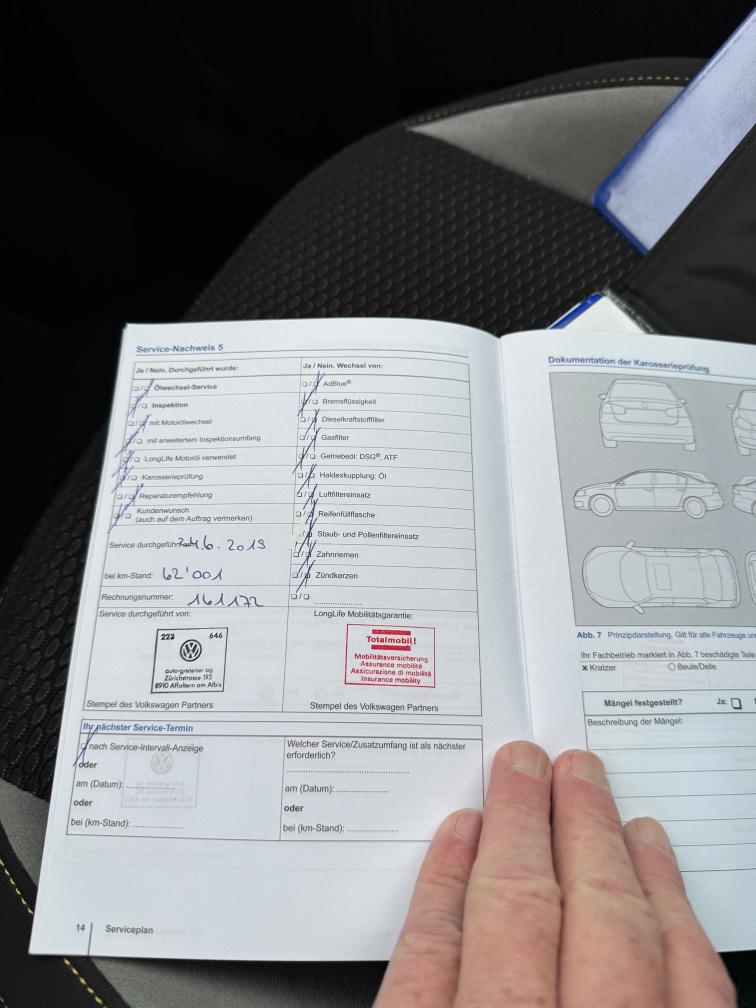 Service-Nachweis 5
Ja / Nein. Durchgeführt wurde:
Ölwechsel-Service
Inspektion
mit Motorölwechsel
mit erweitertem Inspektionsumfang
LongLife Motoröl verwendet
Karosserieprüfung
Reparaturempfehlung
Kundenwunsch
(auch auf dem Auftrag vermerken)
Service durchgeführt am: 24.6.2019
bei km-Stand: 62'001
Rechnungsnummer: 161172
Ja / Nein. Wechsel von:
AdBlue®
Bremsflüssigkeit
Dieselkraftstofffilter
Gasfilter
Getriebeöl: DSG®, ATF
Haldexkupplung: Öl
Luftfiltereinsatz
Reifenfüllflasche
Staub- und Pollenfiltereinsatz
Zahnriemen
Zündkerzen
Service durchgeführt von:
223 646
auto-graf
Zürichstrasse 193
8910 Affoltern am Albis
Stempel des Volkswagen Partners
LongLife Mobilitätsgarantie:
Totalmobil!
Mobilitätsversicherung
Assurance mobilité
Assicurazione di mobilità
Insurance mobility
Stempel des Volkswagen Partners
Ihr nächster Service-Termin
nach Service-Intervall-Anzeige
oder
am (Datum):
oder
bei (km-Stand):
Welcher Service/Zusatzumfang ist als nächster
erforderlich?
am (Datum):
oder
bei (km-Stand):
14 Serviceplan
Dokumentation der Karosserieprüfung
Abb. 7 Prinzipdarstellung. Gilt für alle Fahrzeuge
Ihr Fachbetrieb markiert in Abb. 7 beschädigte Teile
x Kratzer O Beule/Delle
Mängel festgestellt? Ja:
Beschreibung der Mängel: